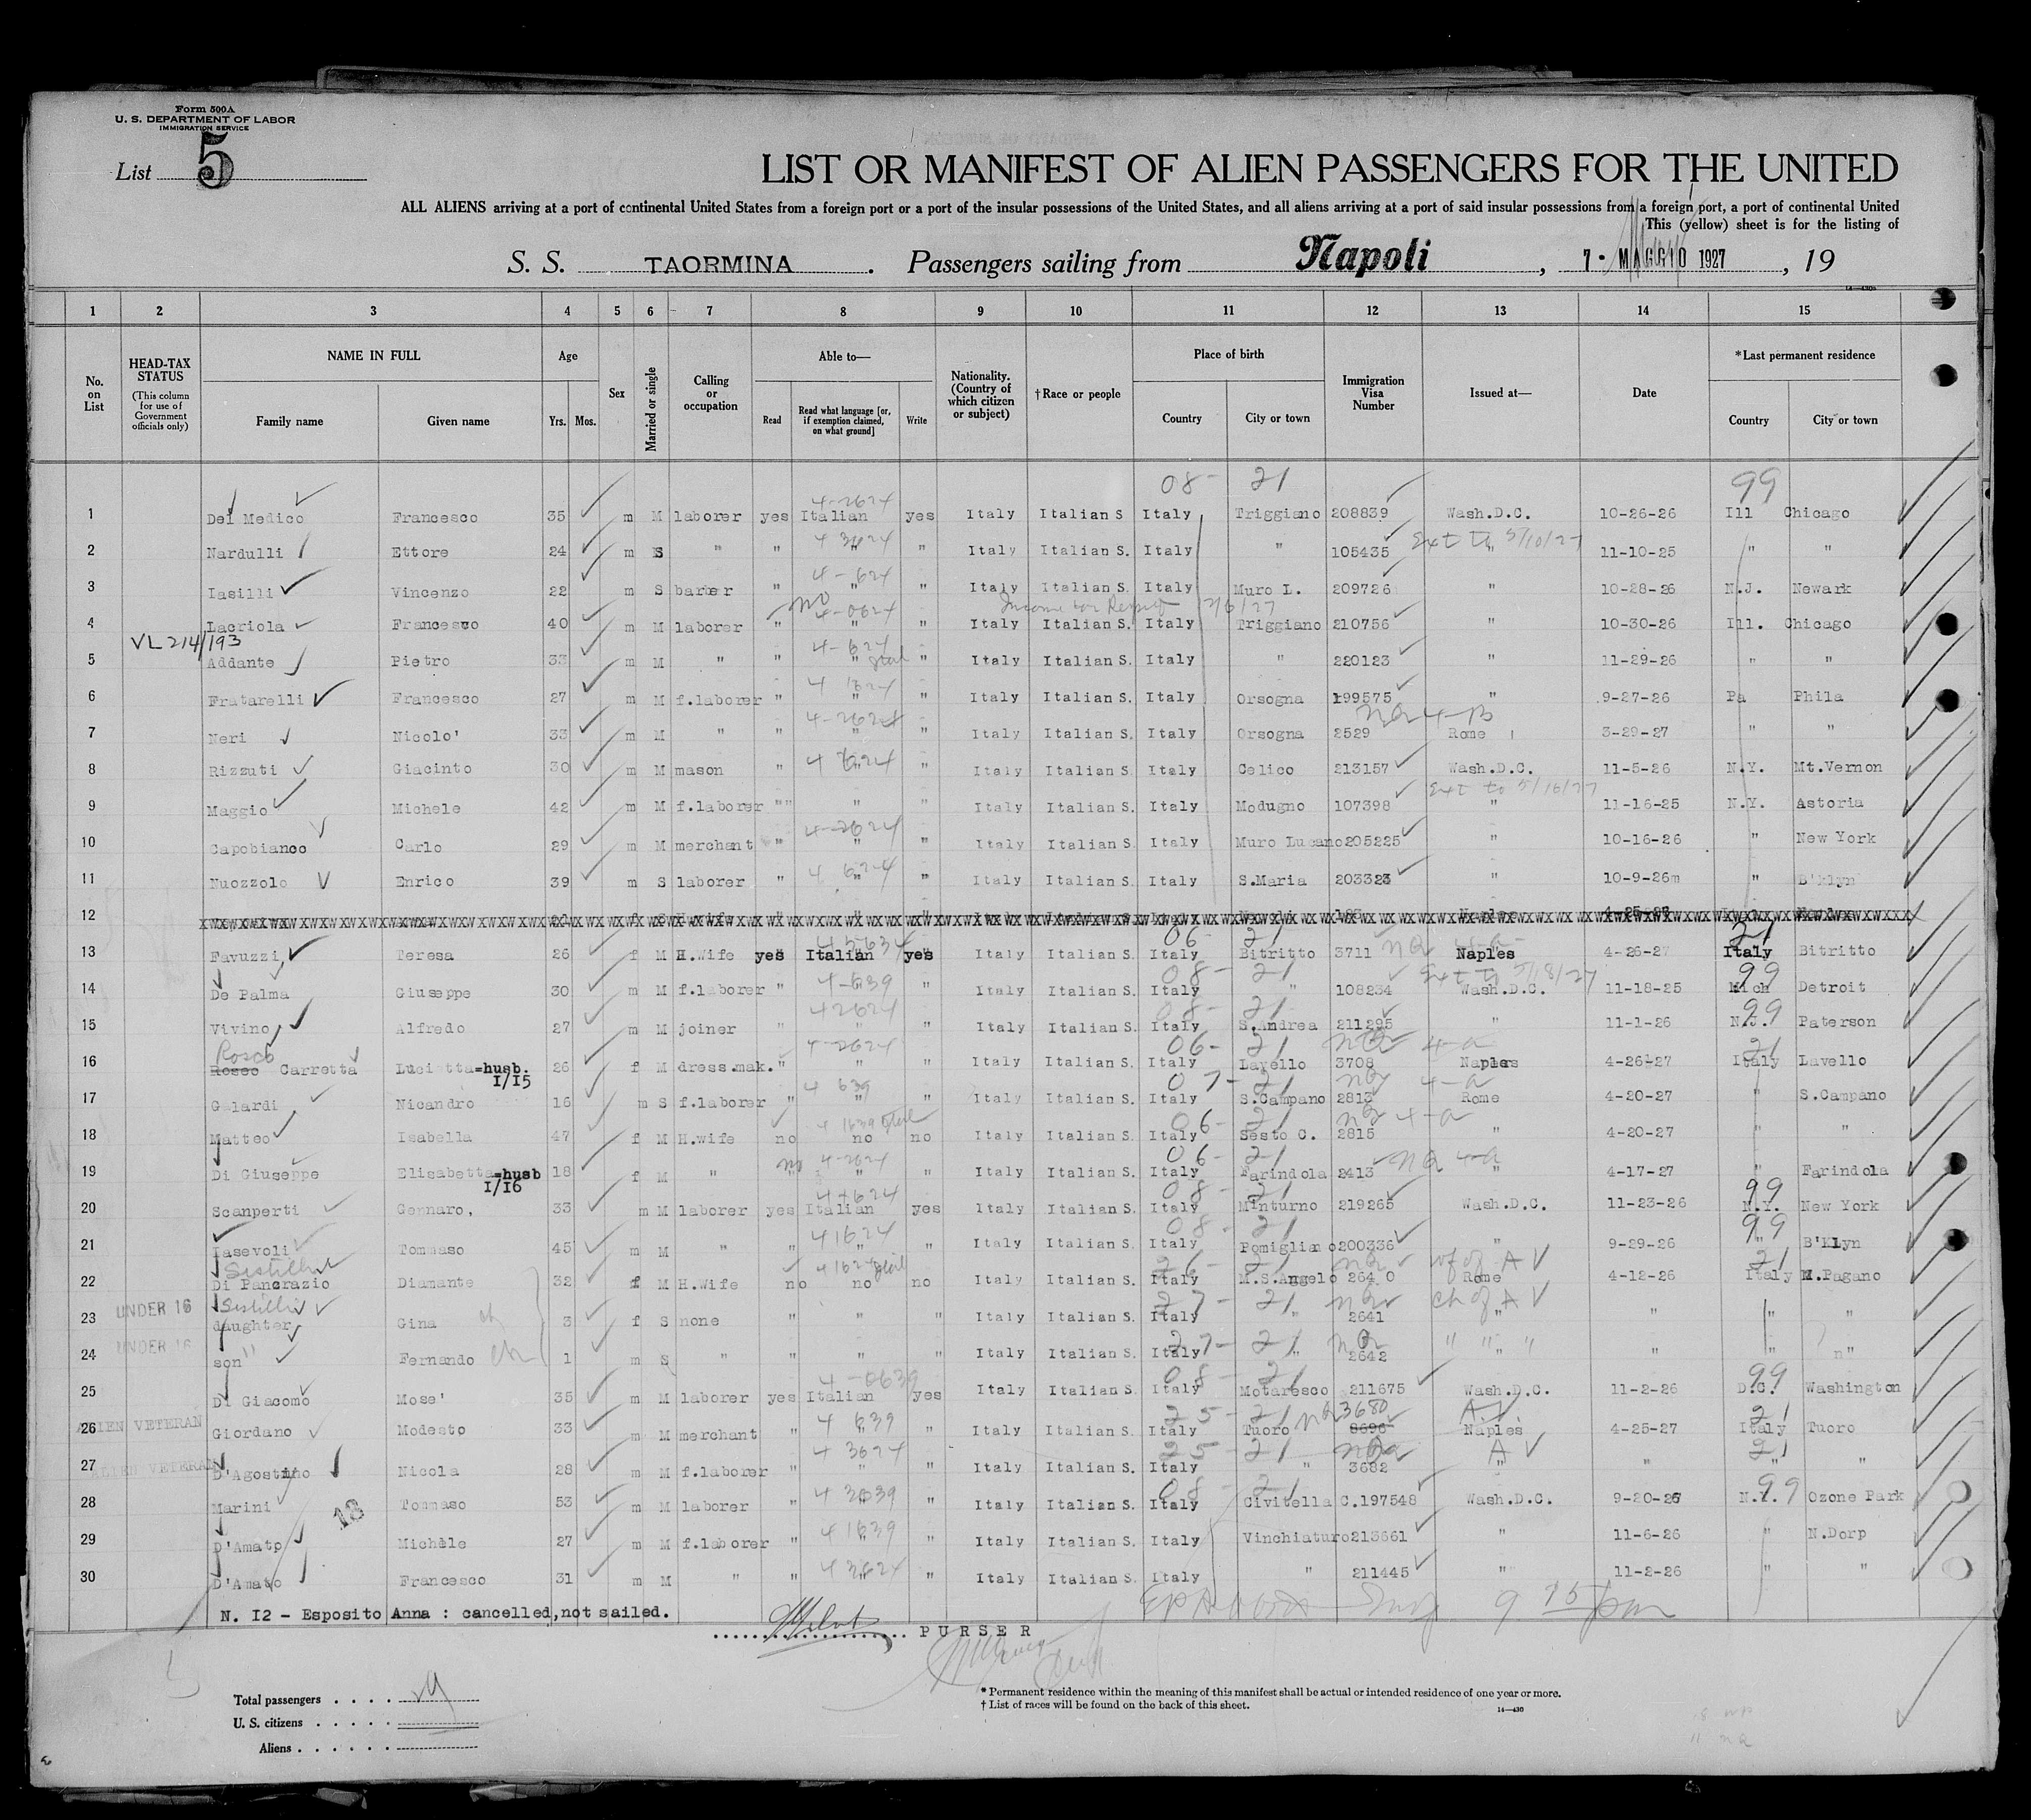 Form 500A
U. S. DEPARTMENT OF LABOR
IMMIGRATION SERVICE
List 5
LIST OR MANIFEST OF ALIEN PASSENGERS FOR THE UNITED
ALL ALIENS arriving at a port of continental United States from a foreign port or a port of the insular possessions of the United States, and all aliens arriving at a port of said insular possessions from a foreign port, a port of continental United
This (yellow) sheet is for the listing of
S. S. TAORMINA. Passengers sailing from Napoli, 7 - MAGGIO 1927, 19
14—430
1 2 3 4 5 6 7 8 9 10 11 12 13 14 15
No. on List
HEAD-TAX STATUS (This column for use of Government officials only)
NAME IN FULL Family name Given name
Age Yrs. Mos.
Sex
Married or single
Calling or occupation
Able to— Read Read what language [or, if exemption claimed, on what ground] Write
Nationality. (Country of which citizen or subject)
† Race or people
Place of birth Country City or town
Immigration Visa Number
Issued at—
Date
*Last permanent residence Country City or town
08- 21 99
4-2624
1 Del Medico Francesco 35 m M laborer yes Italian yes Italy Italian S Italy Triggiano 208839 Wash.D.C. 10-26-26 Ill Chicago
4 3624 Ext to 5/10/27
2 Nardulli Ettore 24 m S " " " " Italy Italian S. Italy " 105435 " 11-10-25 " "
4-624
3 Iasilli Vincenzo 22 m S barber " " " Italy Italian S. Italy Muro L. 209726 " 10-28-26 N.J. Newark
no 4-0624 12/6/27
4 Lacriola Francesco 40 m M laborer " " " Italy Italian S. Italy Triggiano 210756 " 10-30-26 Ill. Chicago
VL 214/193 4-624
5 Addante Pietro 33 m M " " " " Italy Italian S. Italy " 220123 " 11-29-26 " "
6 Fratarelli Francesco 27 m M f.laborer " " " Italy Italian S. Italy Orsogna 199575 " 9-27-26 Pa Phila
4-2624 NQ 4-B
7 Neri Nicolo' 33 m M " " " " Italy Italian S. Italy Orsogna 2529 Rome 3-29-27 " "
8 Rizzuti Giacinto 30 m M mason " " " Italy Italian S. Italy Celico 213157 Wash.D.C. 11-5-26 N.Y. Mt.Vernon
Ext to 5/16/27
9 Maggio Michele 42 m M f.laborer "" " " Italy Italian S. Italy Modugno 107398 " 11-16-25 N.Y. Astoria
4-2624
10 Capobianco Carlo 29 m M merchant " " " Italy Italian S. Italy Muro Lucano 205225 " 10-16-26 " New York
4 624
11 Nuozzolo Enrico 39 m S laborer " " " Italy Italian S. Italy S.Maria 203323 " 10-9-26m " B'klyn
12
06- 21 NQ 4-a- 21
13 Favuzzi Teresa 26 f M H.Wife yes Italian yes Italy Italian S. Italy Bitritto 3711 Naples 4-26-27 Italy Bitritto
4-639 08- 21 Ext to 5/18/27 99
14 De Palma Giuseppe 30 m M f.laborer " " Italy Italian S. Italy " 108234 Wash.D.C. 11-18-25 Mich Detroit
42624 08- 21 99
15 Vivino Alfredo 27 m M joiner " " " Italy Italian S. Italy S.Andrea 211295 " 11-1-26 N.J. Paterson
Rosco 4-2624 06- 21 NQ 4-a 21
16 Rosco Carretta Lucietta=husb. 1/15 26 f M dress.mak. " " " Italy Italian S. Italy Lavello 3708 Naples 4-26-27 Italy Lavello
4 639 07- 21 NQ 4-a
17 Galardi Nicandro 16 m S f.laborer " " " Italy Italian S. Italy S.Campano 2813 Rome 4-20-27 " S.Campano
06- 21 NQ 4-a
18 Matteo Isabella 47 f M H.wife no no no Italy Italian S. Italy Sesto C. 2815 " 4-20-27 " "
no 4-2624 06- 21 NQ 4-a
19 Di Giuseppe Elisabetta=husb 1/16 18 f M " " " " Italy Italian S. Italy Farindola 2413 " 4-17-27 " Farindola
08- 21 99
20 Scanperti Gennaro, 33 m M laborer yes Italian yes Italy Italian S. Italy Minturno 219265 Wash.D.C. 11-23-26 N.Y. New York
41624 08- 21 99
21 Iasevoli Tommaso 45 m M " " " " Italy Italian S. Italy Pomigliano 200336 " 9-29-26 " B'Klyn
Sistilli 26- 21 NQ wf of A V 21
22 Di Pancrazio Diamante 32 f M H.Wife no no no Italy Italian S. Italy M.S.Angelo 2640 Rome 4-12-26 Italy M.Pagano
UNDER 16 Sistilli 27- 21 NQ ch of A V
23 daughter Gina 3 f S none " " " Italy Italian S. Italy " 2641 " " " "
UNDER 16 27- 21 NQ " " "
24 son Fernando ch 1 m S " " " " Italy Italian S. Italy " 2642 " " "
4-0639 08- 21 99
25 Di Giacomo Mose' 35 m M laborer yes Italian yes Italy Italian S. Italy Motaresco 211675 Wash.D.C. 11-2-26 D.C. Washington
ALIEN VETERAN 4 639 25- 21 NQ 3680 A.V. 21
26 Giordano Modesto 33 m M merchant " " " Italy Italian S. Italy Tuoro 8696 Naples 4-25-27 Italy Tuoro
ALIEN VETERAN 4 3624 25- 21 NQ A V 21
27 D'Agostino Nicola 28 m M f.laborer " " " Italy Italian S. Italy " 3682 " " " "
08- 21 99
28 Marini Tommaso 53 m M laborer " " " Italy Italian S. Italy Civitella C. 197548 Wash.D.C. 9-20-26 N.Y. Ozone Park
18 41639
29 D'Amato Michele 27 m M f.laborer " " " Italy Italian S. Italy Vinchiaturo 213661 " 11-6-26 " N.Dorp
30 D'Amato Francesco 31 m M " " " " Italy Italian S. Italy " 211445 " 11-2-26 " "
N. I2 - Esposito Anna : cancelled,not sailed.
PURSER
Total passengers
U. S. citizens
Aliens
* Permanent residence within the meaning of this manifest shall be actual or intended residence of one year or more.
† List of races will be found on the back of this sheet.
14—430